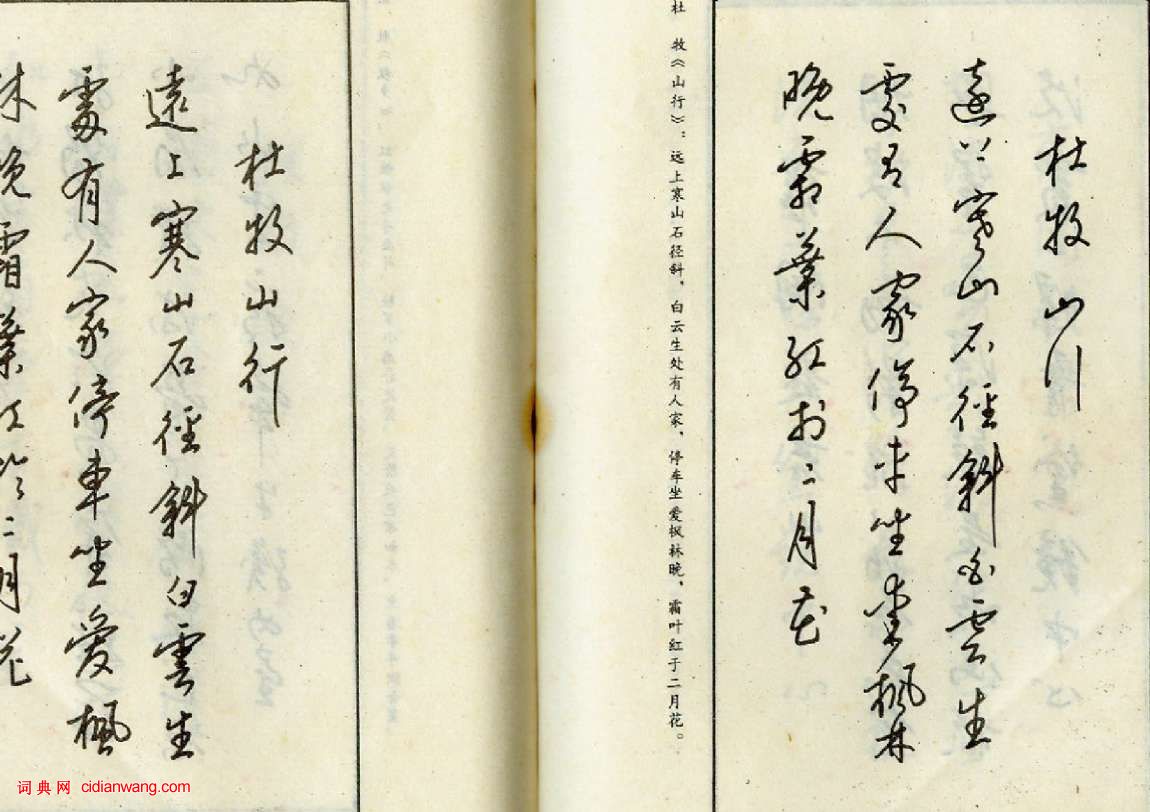 杜牧山行
遠上寒山石徑斜白雲生
處有人家停車坐愛楓林
晚霜葉紅於二月花
杜 牧《山行》：远上寒山石径斜，白云生处有人家，停车坐爱枫林晚，霜叶红于二月花。
杜牧山行
遠上寒山石徑斜白雲生
處有人家停車坐愛楓
林晚霜葉紅於二月花
词典网 cidianwang.com